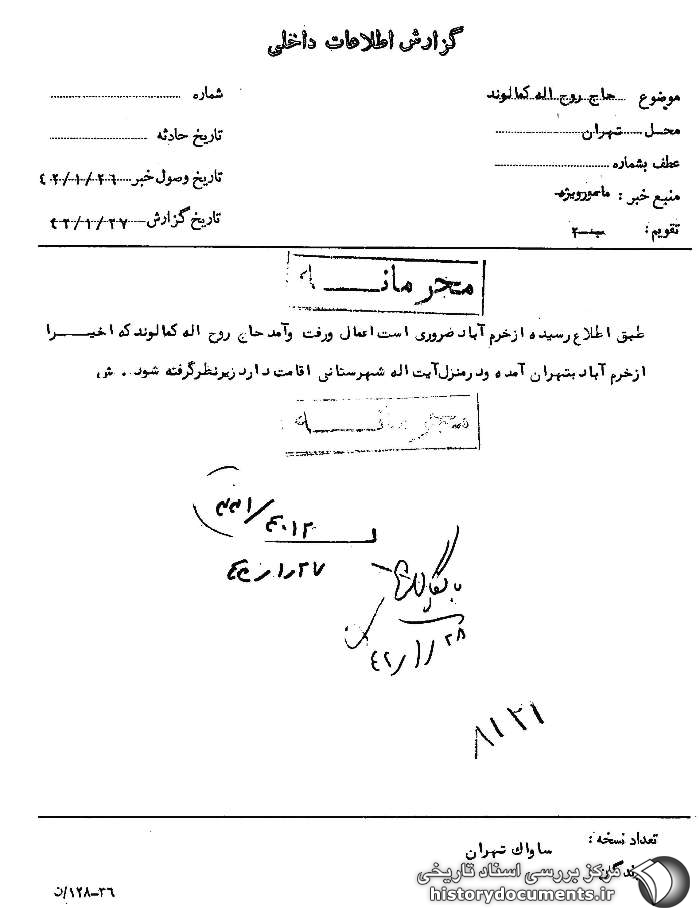 گزارش اطلاعات داخلی
موضوع حاج روح اله کمالوند
شماره
محل تهران
تاریخ حادثه
عطف بشماره
تاریخ وصول خبر ۴۲/۱/۲۶
منبع خبر : مامور ویژه
تاریخ گزارش ۴۲/۱/۲۷
تقویم : ب-۲
محرمانه
طبق اطلاع رسیده از خرم آباد ضروری است اعمال و رفت وآمد حاج روح اله کمالوند که اخیرا
از خرم آباد بتهران آمده و در منزل آیت اله شهرستانی اقامت دارد زیر نظر گرفته شود . ش
محرمانه
۴۲/۱/۲۷
بایگانی
۴۲/۱/۲۸
۸۱۲۱
تعداد نسخه :
ساواك تهران
مرکز بررسی اسناد تاریخی
historydocuments.ir
۳۶-۱۲۸/ن